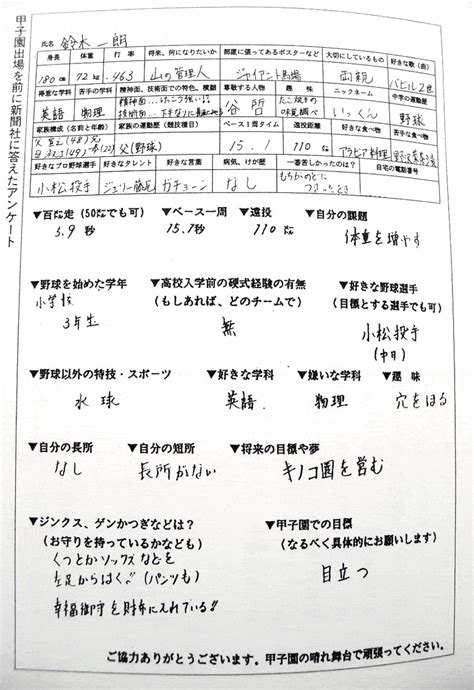 甲子園出場を前に新聞社に答えたアンケート
氏名 鈴木一朗
身長 体重 打率 将来、何になりたいか 部屋に張ってあるポスターなど 大切にしているもの 好きな歌(曲)
180cm 72kg .463 山の管理人 ジャイアント馬場 両親 バビル2世
得意な学科 苦手の学科 精神面、技術面での特色、横顔 尊敬する人物 趣味 ニックネーム 中学の運動歴
英語 物理 谷哲 たこ焼きの味覚調べ いっくん 野球
家族構成(名前と年齢) 家族の運動歴(競技種目) ベース1周タイム 遠投距離 好きな食べ物 苦手な食べ物
父(野球) 15.1 110m アラビア料理
好きなプロ野球選手 好きなタレント 好きな言葉 病気、けが歴 一番苦しかったのは? 自宅の電話番号
小松投手 ジェリー藤尾 ガチョーン なし もちがのどにつまったとき
▼百m走(50mでも可) ▼ベース一周 ▼遠投 ▼自分の課題
5.9秒 15.1秒 110m 体重を増やす
▼野球を始めた学年 ▼高校入学前の硬式経験の有無 ▼好きな野球選手
(もしあれば、どのチームで) (目標とする選手でも可)
小学校 無 小松投手
3年生 (中日)
▼野球以外の特技・スポーツ ▼好きな学科 ▼嫌いな学科 ▼趣味
水球 英語 物理 穴をほる
▼自分の長所 ▼自分の短所 ▼将来の目標や夢
なし 長所がない キノコ園を営む
▼ジンクス、ゲンかつぎなどは? ▼甲子園での目標
(お守りを持っているかなども) (なるべく具体的にお願いします)
くつとかソックスなどを 目立つ
左足からはく!!(パンツも)
幸福御守を財布に入れている!!
ご協力ありがとうございます。甲子園の晴れ舞台で頑張ってください。